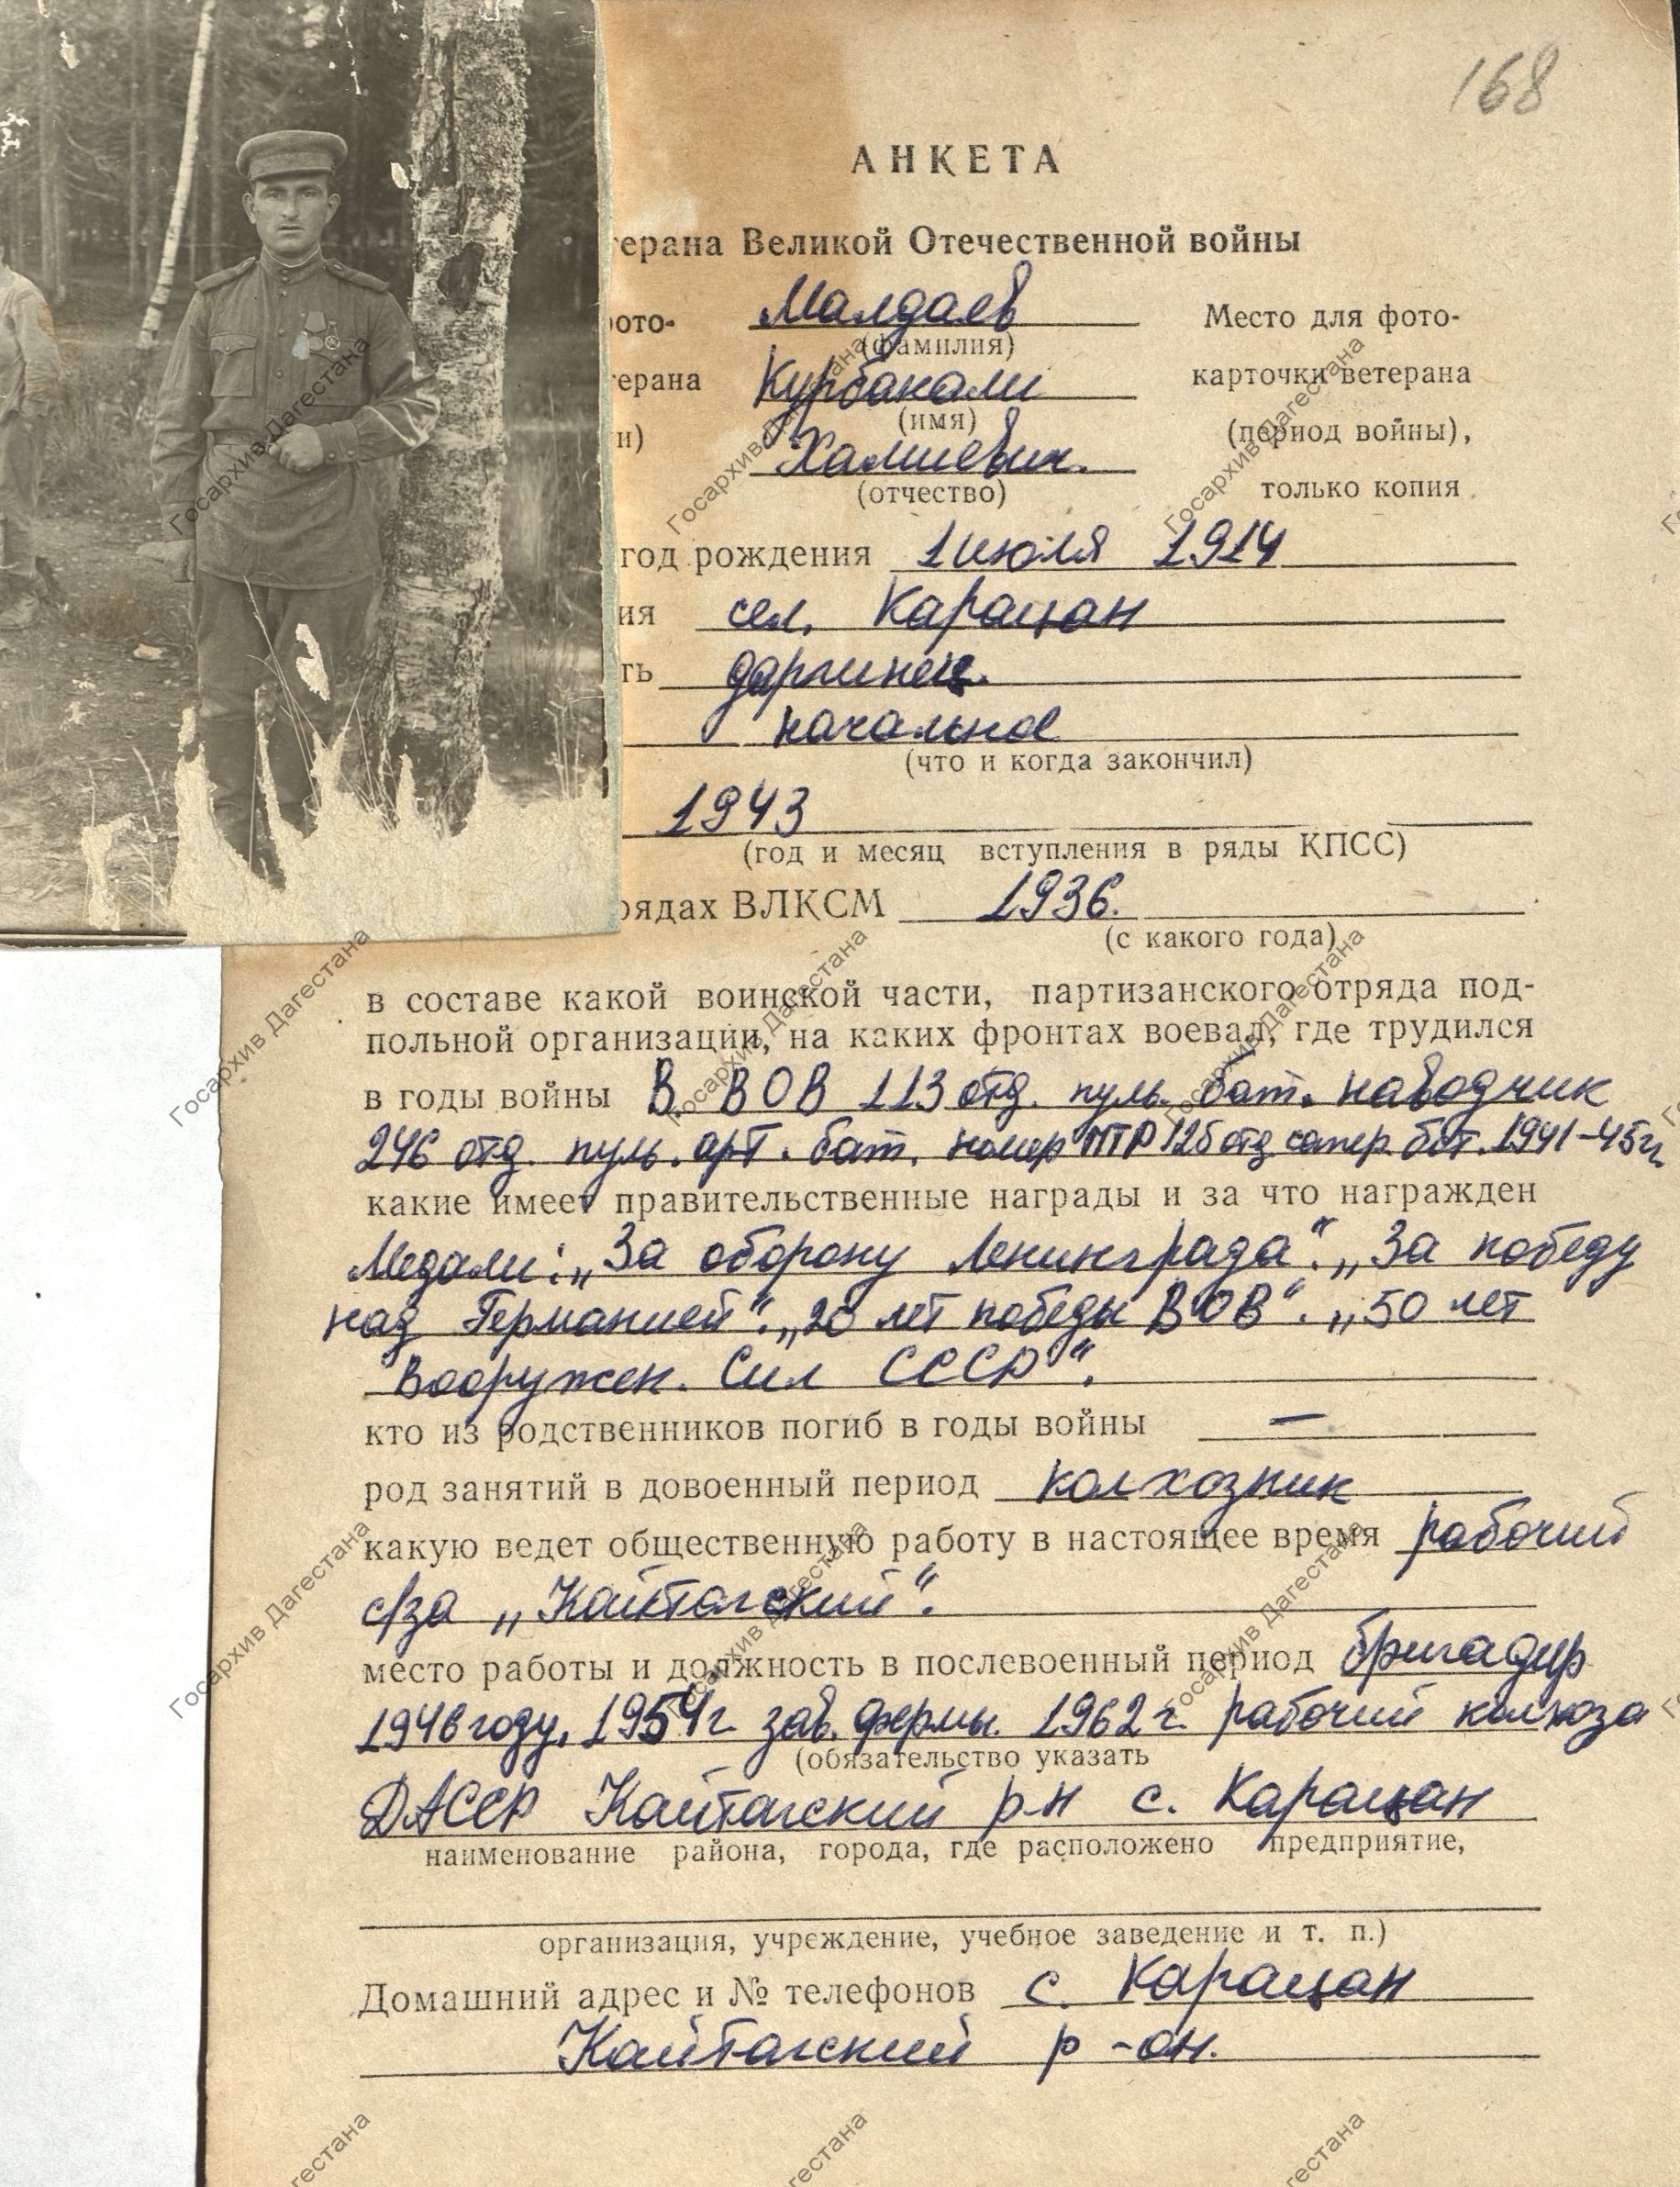 168
АНКЕТА
терана Великой Отечественной войны
Малдаев
ото-
Место для фото-
(фамилия)
терана
Курбанали
карточки ветерана
(имя)
и)
(период войны),
Халиевич.
(отчество)
только копия
год рождения 1 июля 1914
ия сел. Карацан
ть даргинец.
начальное
(что и когда закончил)
1943
(год и месяц вступления в ряды КПСС)
рядах ВЛКСМ 1936.
(с какого года)
в составе какой воинской части, партизанского отряда под-
польной организации, на каких фронтах воевал, где трудился
в годы войны В ВОВ 113 отд. пуль. бат. наводчик
246 отд. пуль. арт. бат. номер ПТР 125 отд сапер. бат. 1941-45гг.
какие имеет правительственные награды и за что награжден
Медали: „За оборону Ленинграда“. „За победу
над Германией“. „20 лет победы ВОВ“. „50 лет
Вооружен. Сил СССР“.
кто из родственников погиб в годы войны —
род занятий в довоенный период колхозник
какую ведет общественную работу в настоящее время рабочий
с/за „Кайтагский“.
место работы и должность в послевоенный период бригадир
1946 году, 1954г зав. фермы. 1962г. рабочий колхоза
(обязательство указать
ДАССР Кайтагский р-н с. Карацан
наименование района, города, где расположено предприятие,
организация, учреждение, учебное заведение и т. п.)
Домашний адрес и № телефонов с. Карацан
Кайтагский р-он.
Госархив Дагестана